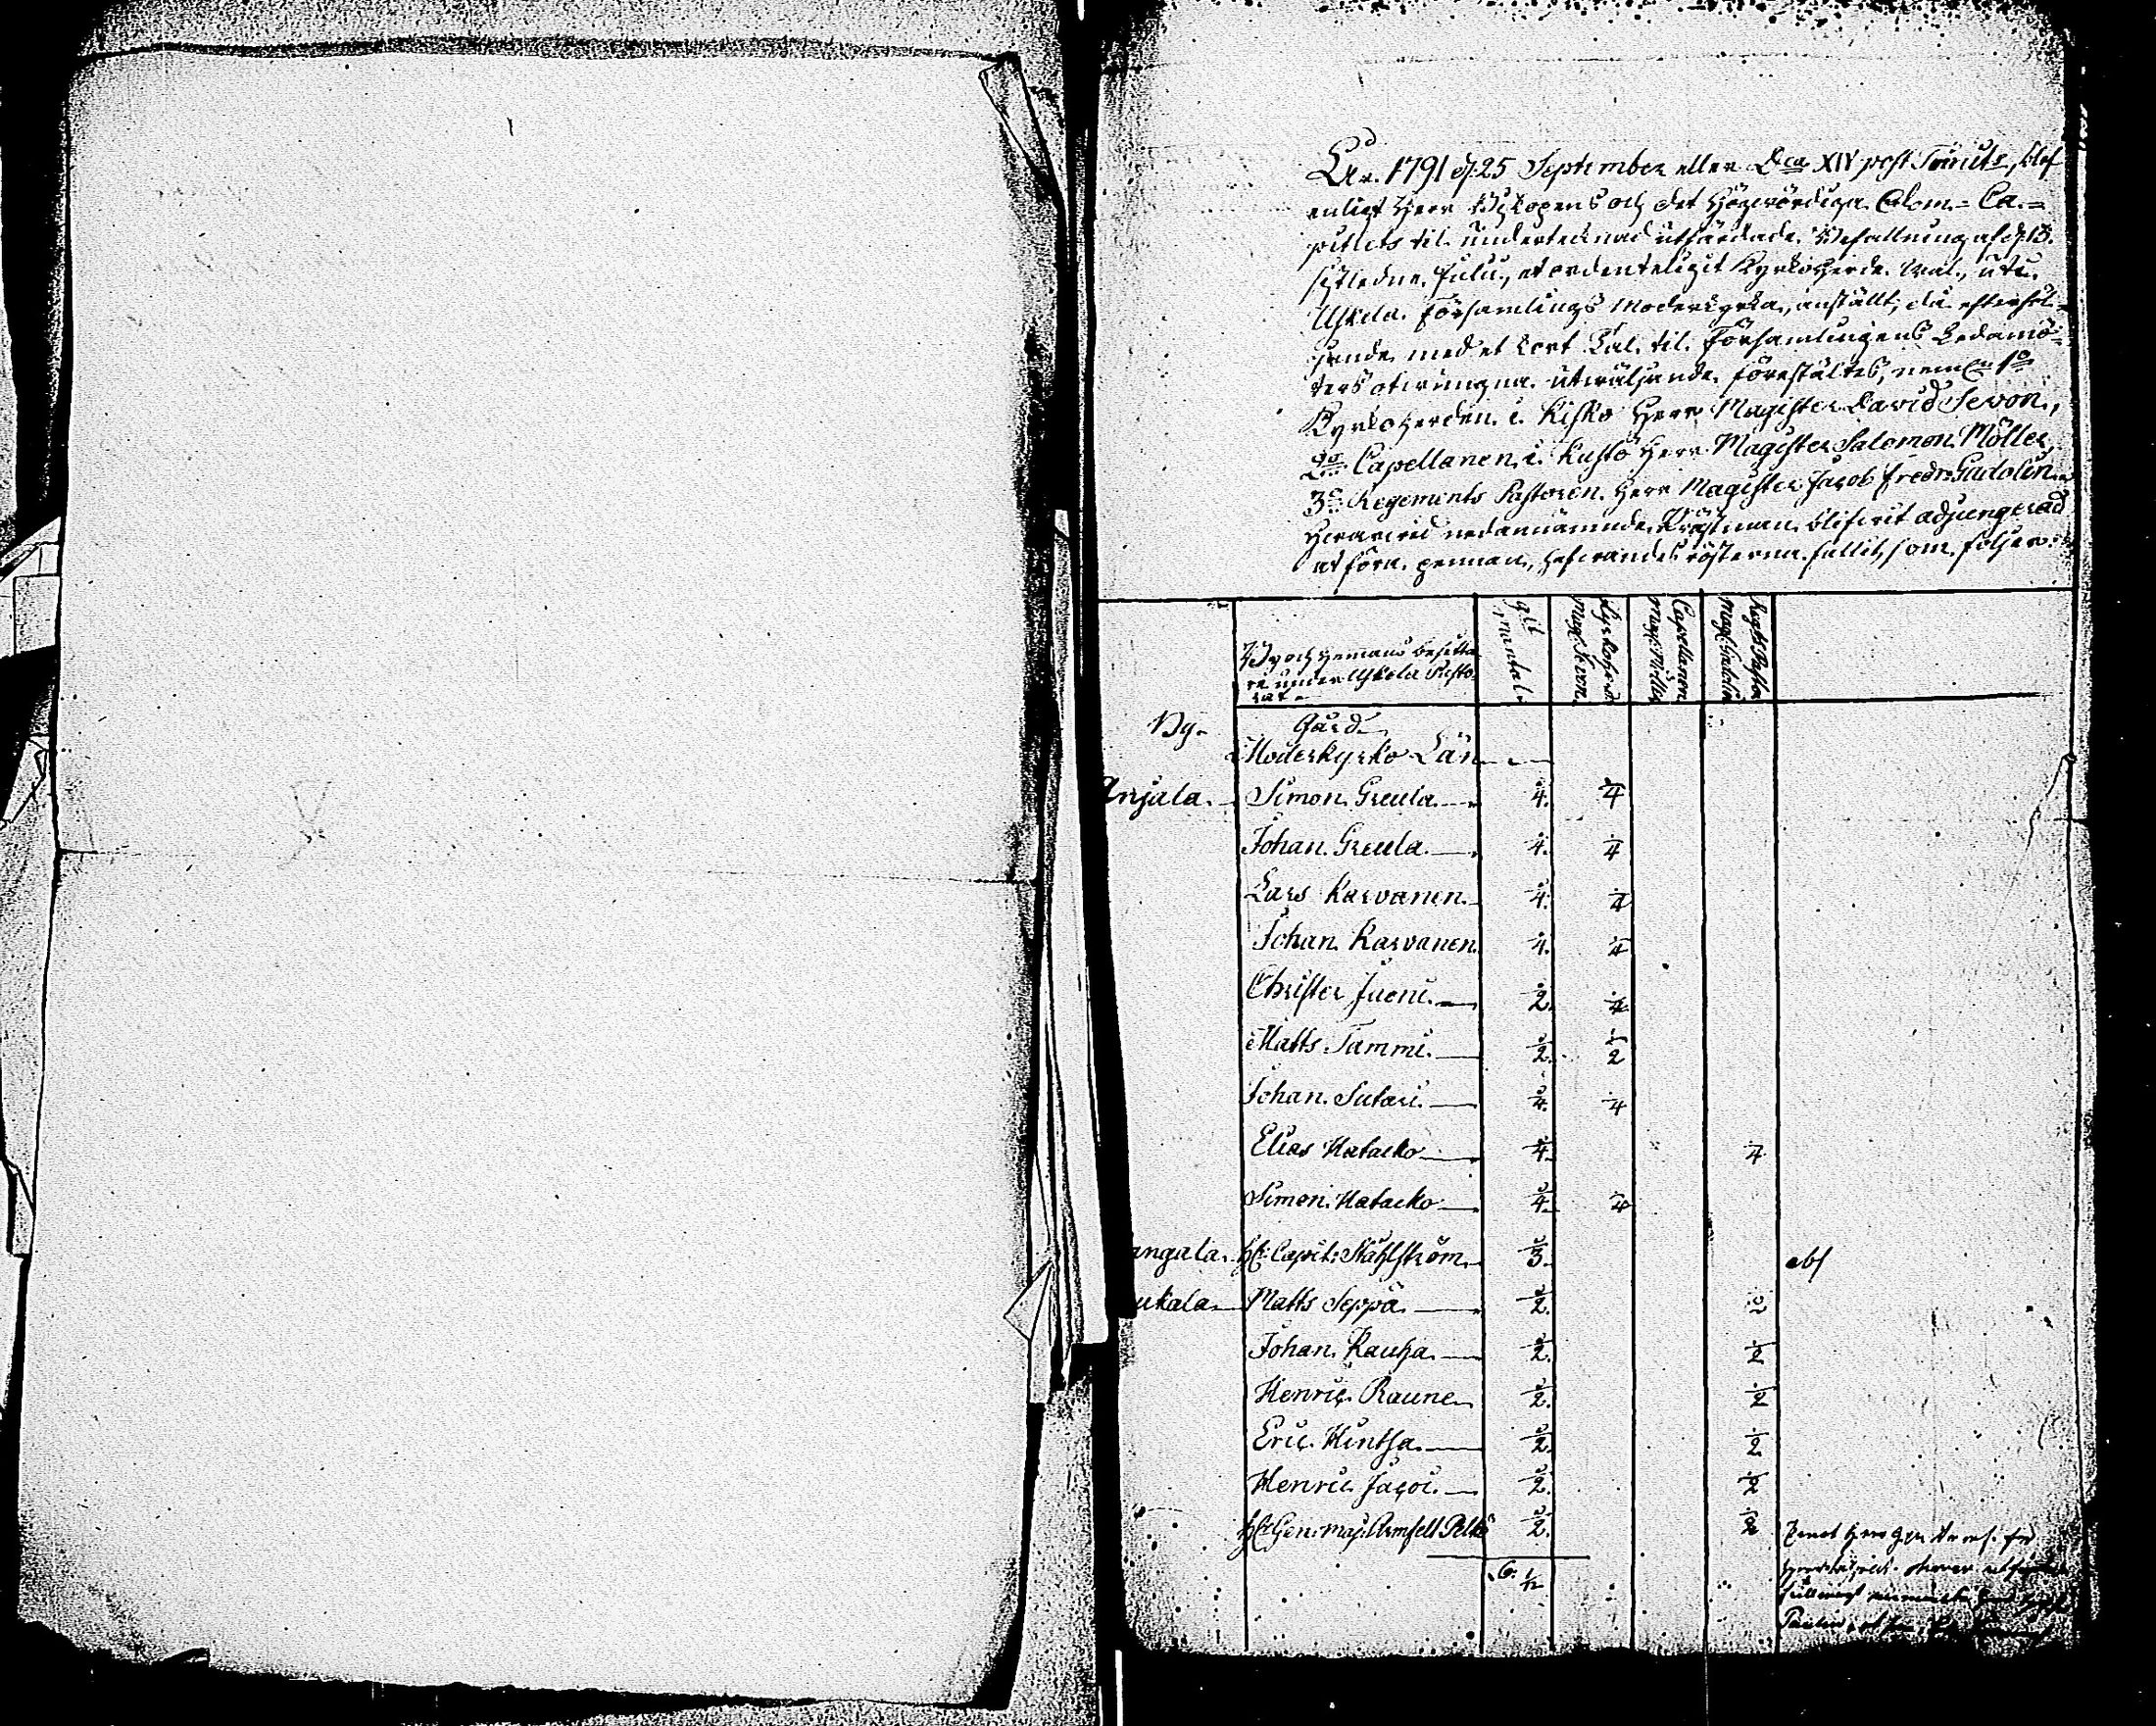 År 1791 d. 25 September eller Dca XIV post Trinits, blef
enligt Herr Biskopens och det Högwördiga Dom-Ca-
pitlets til undertecnad utfärdade Befallning af d. 13
sistledne Julii, et ordenteligit Kyrkoherde wal, uti
Uskela Församlings Moderkyrka, anställt, då efterföl-
jande med et kort Tal til Församlingens Ledamö-
ters otwungna utwäljande föreställtes, neml. 1o
Kyrkoherden i Kisko Herr Magister David Sevon,
2o Capellanen i Kustö Herr Magister Salomon Möller,
3o Regements Pastoren Herr Magister Jacob Fredr. Gadolin
Hwarwid nedannämnde Prästman blifwit adjungerad
at föra pennan, hafwandes rösterna fallit, som följer:
By och Hemans besitta-
re under Uskela Pasto-
rat
mantal
Kyrkoherd.
Mag. Sevon
Capellanen
Mag. Möller
Regts Pasto
Mag. Gadolin
By. Gård
Moderkyrko Län
Anjala. Simon Greula 4. 4
Johan Greula 4. 4
Lars Karvanen 4. 4
Johan Karvanen 4. 4
Christer Juoni 2. 4
Matts Tammi 2. 2
Johan Sutari 4. 4
Elias Hatacko 4. 4
Simon Hatacko 4. 4
angala. Hr Capit: Stählström 3. abs
ukala Matts Seppä 2. 2
Johan Rauha 2. 2
Henric Raune 2. 2
Eric Hintsa 2. 2
Henric Jacoi 2. 2
Hr Gen: maj. Armfelt Pelto 2. 2
6. 1/12